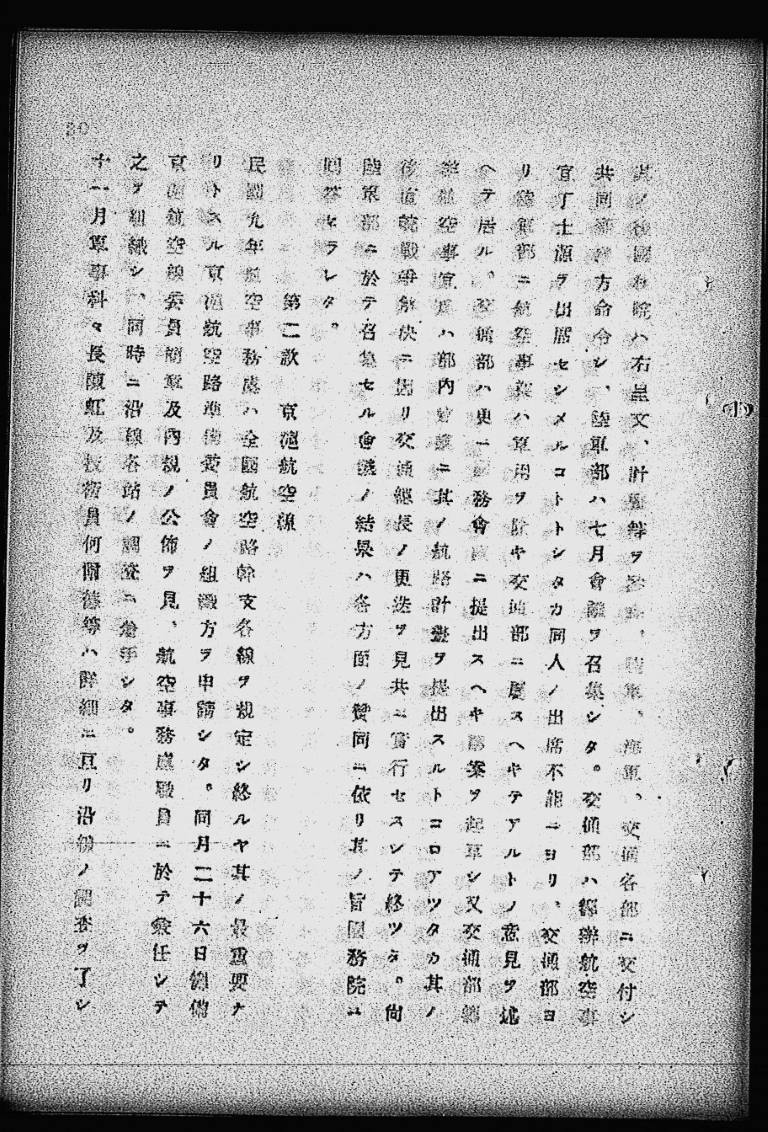 其ノ後國務院ハ右呈文、計畫等ヲ 陸軍、海軍、交通各部ニ交付シ
共同 方命令シ、陸軍部ハ七月會議ヲ召集シタ。交通部ハ 辦航空事
宜丁士源ヲ出席セシメルコトトシタカ同人ノ出席不能ニヨリ、交通部ヨ
リ陸軍部ニ航空事業ハ軍用ヲ除キ交通部ニ屬スヘキテアルトノ意見ヲ述
ヘテ居ル。交通部ハ更ニ 務會議ニ提出スヘキ議案ヲ起草シ又交通部
辦航空事宜 ハ部内會議ニ其ノ航路計畫ヲ提出スルトコロアツタカ其ノ
後直皖戰爭解決ニ因リ交通總長ノ更迭ヲ見共ニ實行セスシテ終ツタ。尚
陸軍部ニ於テ召集セル會議ノ結果ハ各方面ノ贊同ニ依リ其ノ旨國務院ニ
回答セラレタ。
第二款 京滬航空線
民國九年航空事務處ハ全國航空路幹支各線ヲ規定シ終ルヤ其ノ最重要ナ
リトスル京滬航空路準備委員會ノ組織方ヲ申請シタ。同月二十六日籌備
京滬航空線委員簡章及內規ノ公佈ヲ見、航空事務處職員ニ於テ兼任シテ
之ヲ組織シ、同時ニ沿線各站ノ調査ニ着手シタ。
十一月軍事科々長陳虹及技術員何爾德等ハ詳細ニ亘リ沿線ノ調査ヲ了シ
30